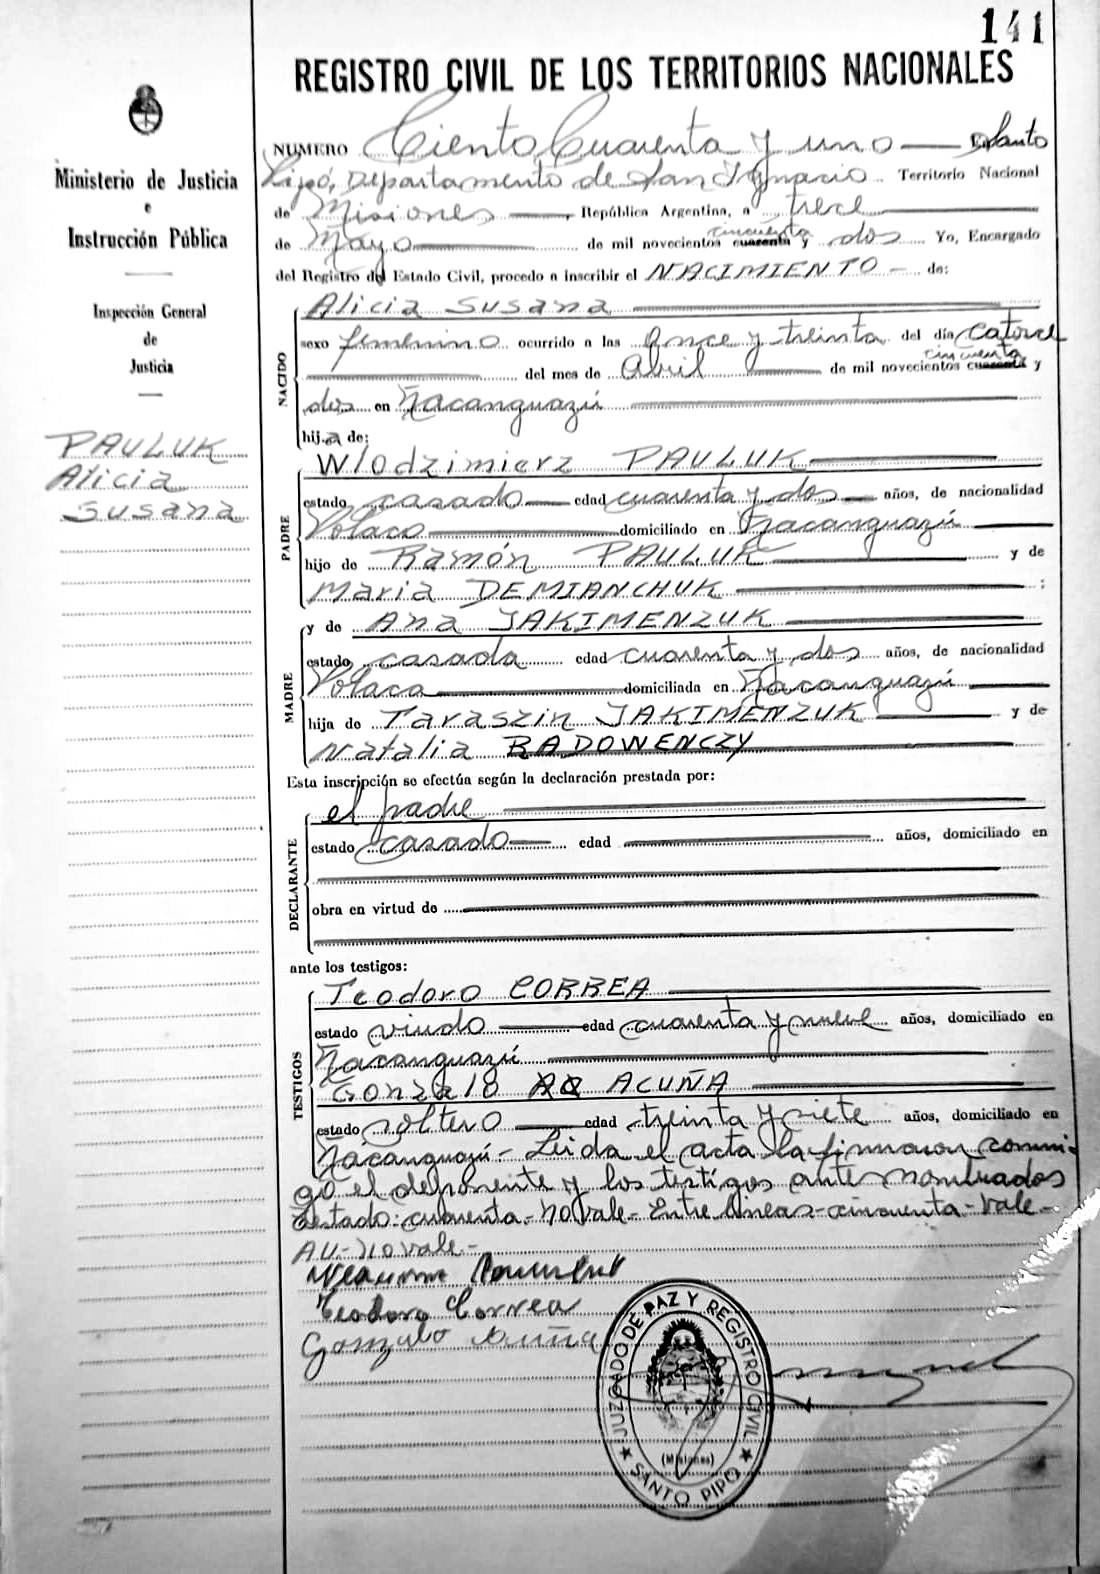 141
REGISTRO CIVIL DE LOS TERRITORIOS NACIONALES
Ministerio de Justicia
e
Instrucción Pública
Inspección General
de
Justicia
PAULUK
Alicia
Susana
NUMERO Ciento Cuarenta y uno En Santo
Pipó, Departamento de San Ignacio Territorio Nacional
de Misiones, República Argentina, a trece
cincuenta
de Mayo de mil novecientos cuarenta y dos Yo, Encargado
del Registro del Estado Civil, procedo a inscribir el NACIMIENTO - de:
NACIDO
Alicia Susana
sexo femenino ocurrido a las once y treinta del día catorce
cincuenta
del mes de Abril de mil novecientos cuarenta y
dos en Ñacanguazú
hija de:
PADRE
Wlodzimierz PAULUK
estado casado edad cuarenta y dos años, de nacionalidad
Polaco domiciliado en Ñacanguazú
hijo de Ramón PAULUK y de
Maria DEMIANCHUK ;
MADRE
y de Ana JAKIMENZUK
estado casada edad cuarenta y dos años, de nacionalidad
Polaca domiciliada en Ñacanguazú
hija de Taraszin JAKIMENZUK y de
Natalia RADOWENCZY
Esta inscripción se efectúa según la declaración prestada por:
DECLARANTE
el padre
estado casado edad años, domiciliado en
obra en virtud de
ante los testigos:
TESTIGOS
Teodoro CORREA
estado viudo edad cuarenta y nueve años, domiciliado en
Ñacanguazú
Gonzalo ACUÑA
estado soltero edad treinta y siete años, domiciliado en
Ñacanguazú - Leida el acta la firmaron conmi-
go el deponente y los testigos ante nombrados
Testado: cuarenta - no vale - Entre lineas - cincuenta - Vale -
AU - no vale -
Teodoro Correa
Gonzalo Acuña
JUZGADO DE PAZ Y REGISTRO CIVIL
(Misiones)
SANTO PIPO